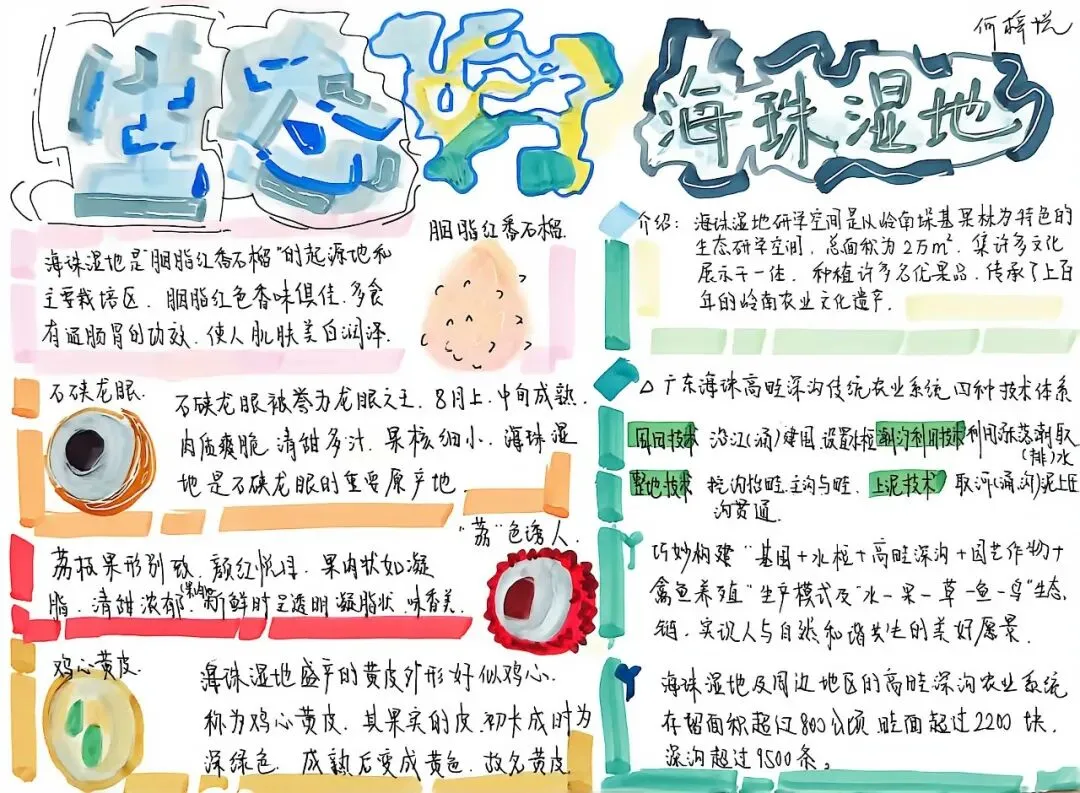 生态
海珠湿地
胭脂红番石榴
海珠湿地是"胭脂红番石榴"的起源地和
主要栽培区、胭脂红色香味俱佳、多食
有通肠胃的功效、使人肌肤美白润泽.
石硖龙眼
石硖龙眼被誉为龙眼之王、8月上、中旬成熟,
肉质爽脆、清甜多汁、果核细小、海珠湿
地是石硖龙眼的重要原产地
"荔"色诱人
荔枝果形别致、颜红悦目、果肉状如凝
脂、清甜浓郁、新鲜时呈透明凝脂状、味香美
鸡心黄皮.
海珠湿地盛产的黄皮外形好似鸡心.
称为鸡心黄皮、其果实的皮、初长成时为
深绿色、成熟后变成黄色、故名黄皮
介绍:海珠湿地研学空间是以岭南垛基果林为特色的
生态研学空间、总面积为2万m²、集许多文化
展示于一体、种植许多名优果品、传承了上百
年的岭南农业文化遗产.
△广东海珠高畦深沟传统农业系统四种技术体系
围田技术 沿江(涌)建围、设置水柜 潮汐利用技术 利用涨落潮取
(排)水
整地技术 挖沟培畦、主沟与畦 上泥技术 取河(涌沟)泥上
沟贯通.
巧妙构建"基围+水柜+高畦深沟+园艺作物+
禽鱼养殖"生产模式及"水-果-草-鱼-鸟"生态
链、实现人与自然和谐共生的美好愿景.
海珠湿地及周边地区的高畦深沟农业系统
存留面积超过800公顷、畦面超过2200块、
深沟超过9500条。